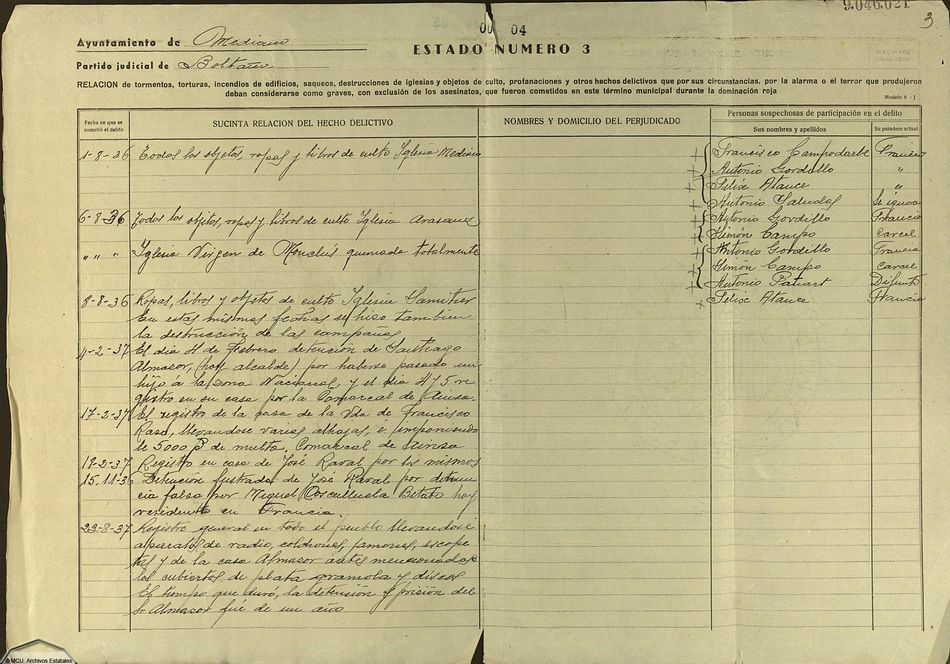 9.046.021
3
00 04
Ayuntamiento de Mediano
ESTADO NUMERO 3
Partido judicial de Boltaña
RELACION de tormentos, torturas, incendios de edificios, saqueos, destrucciones de iglesias y objetos de culto, profanaciones y otros hechos delictivos que por sus circunstancias, por la alarma o el terror que produjeron
deban considerarse como graves, con exclusión de los asesinatos, que fueron cometidos en este término municipal durante la dominación roja
Fecha en que se
cometió el delito
SUCINTA RELACION DEL HECHO DELICTIVO
NOMBRES Y DOMICILIO DEL PERJUDICADO
Personas sospechosas de participación en el delito
Sus nombres y apellidos
Su paradero actual
1-8-36 Todos los objetos, ropas y libros de culto Iglesia Mediano
Francisco Campodarbe Francia
Antonio Gordillo "
Felix Atance "
Antonio Saludas Se ignora
6-8-36 Todos los objetos, ropas y libros de culto Iglesia Arasanz
Antonio Gordillo Francia
Simón Campo carcel
" " " Iglesia Virgen de Monclús quemada totalmente
Antonio Gordillo Francia
Simón Campo carcel
Antonio Difunto
8-8-36 Ropas, libros y objetos de culto Iglesia Samitier
Felix Atance Francia
En estas mismas fechas se hiso tambien
la destrucción de las campañas
4-2-37 El dia 4 de Febrero detención de Santiago
Almasor, (hoy alcalde) por haberse pasado un
hijo á la zona Nacional, y el dia 4 y 5 re
gistro en su casa por la Comarcal de Ainsa
17-2-37 El registro de la casa de la Vda de Francisco
llevandose varias alhajas, e imponiendo
le 5000 de multa. Comarcal de Ainsa
17-2-37 Registro en casa de José Raval por los mismos
15.11-36 Detención fustrada de José Raval por denun
cia falsa por Miguel Cosculluela hoy
residente en Francia.
23-8-37 Registro general en todo el pueblo llevandose
aparatos de radio, colchones, jamones, escope
tas y de la casa Almasor antes mencionado
los cubiertos de plata gramola y discos
El tiempo que duro, la detensión y prisión del
Sr Almasor fué de un año
© MCU. Archivos Estatales